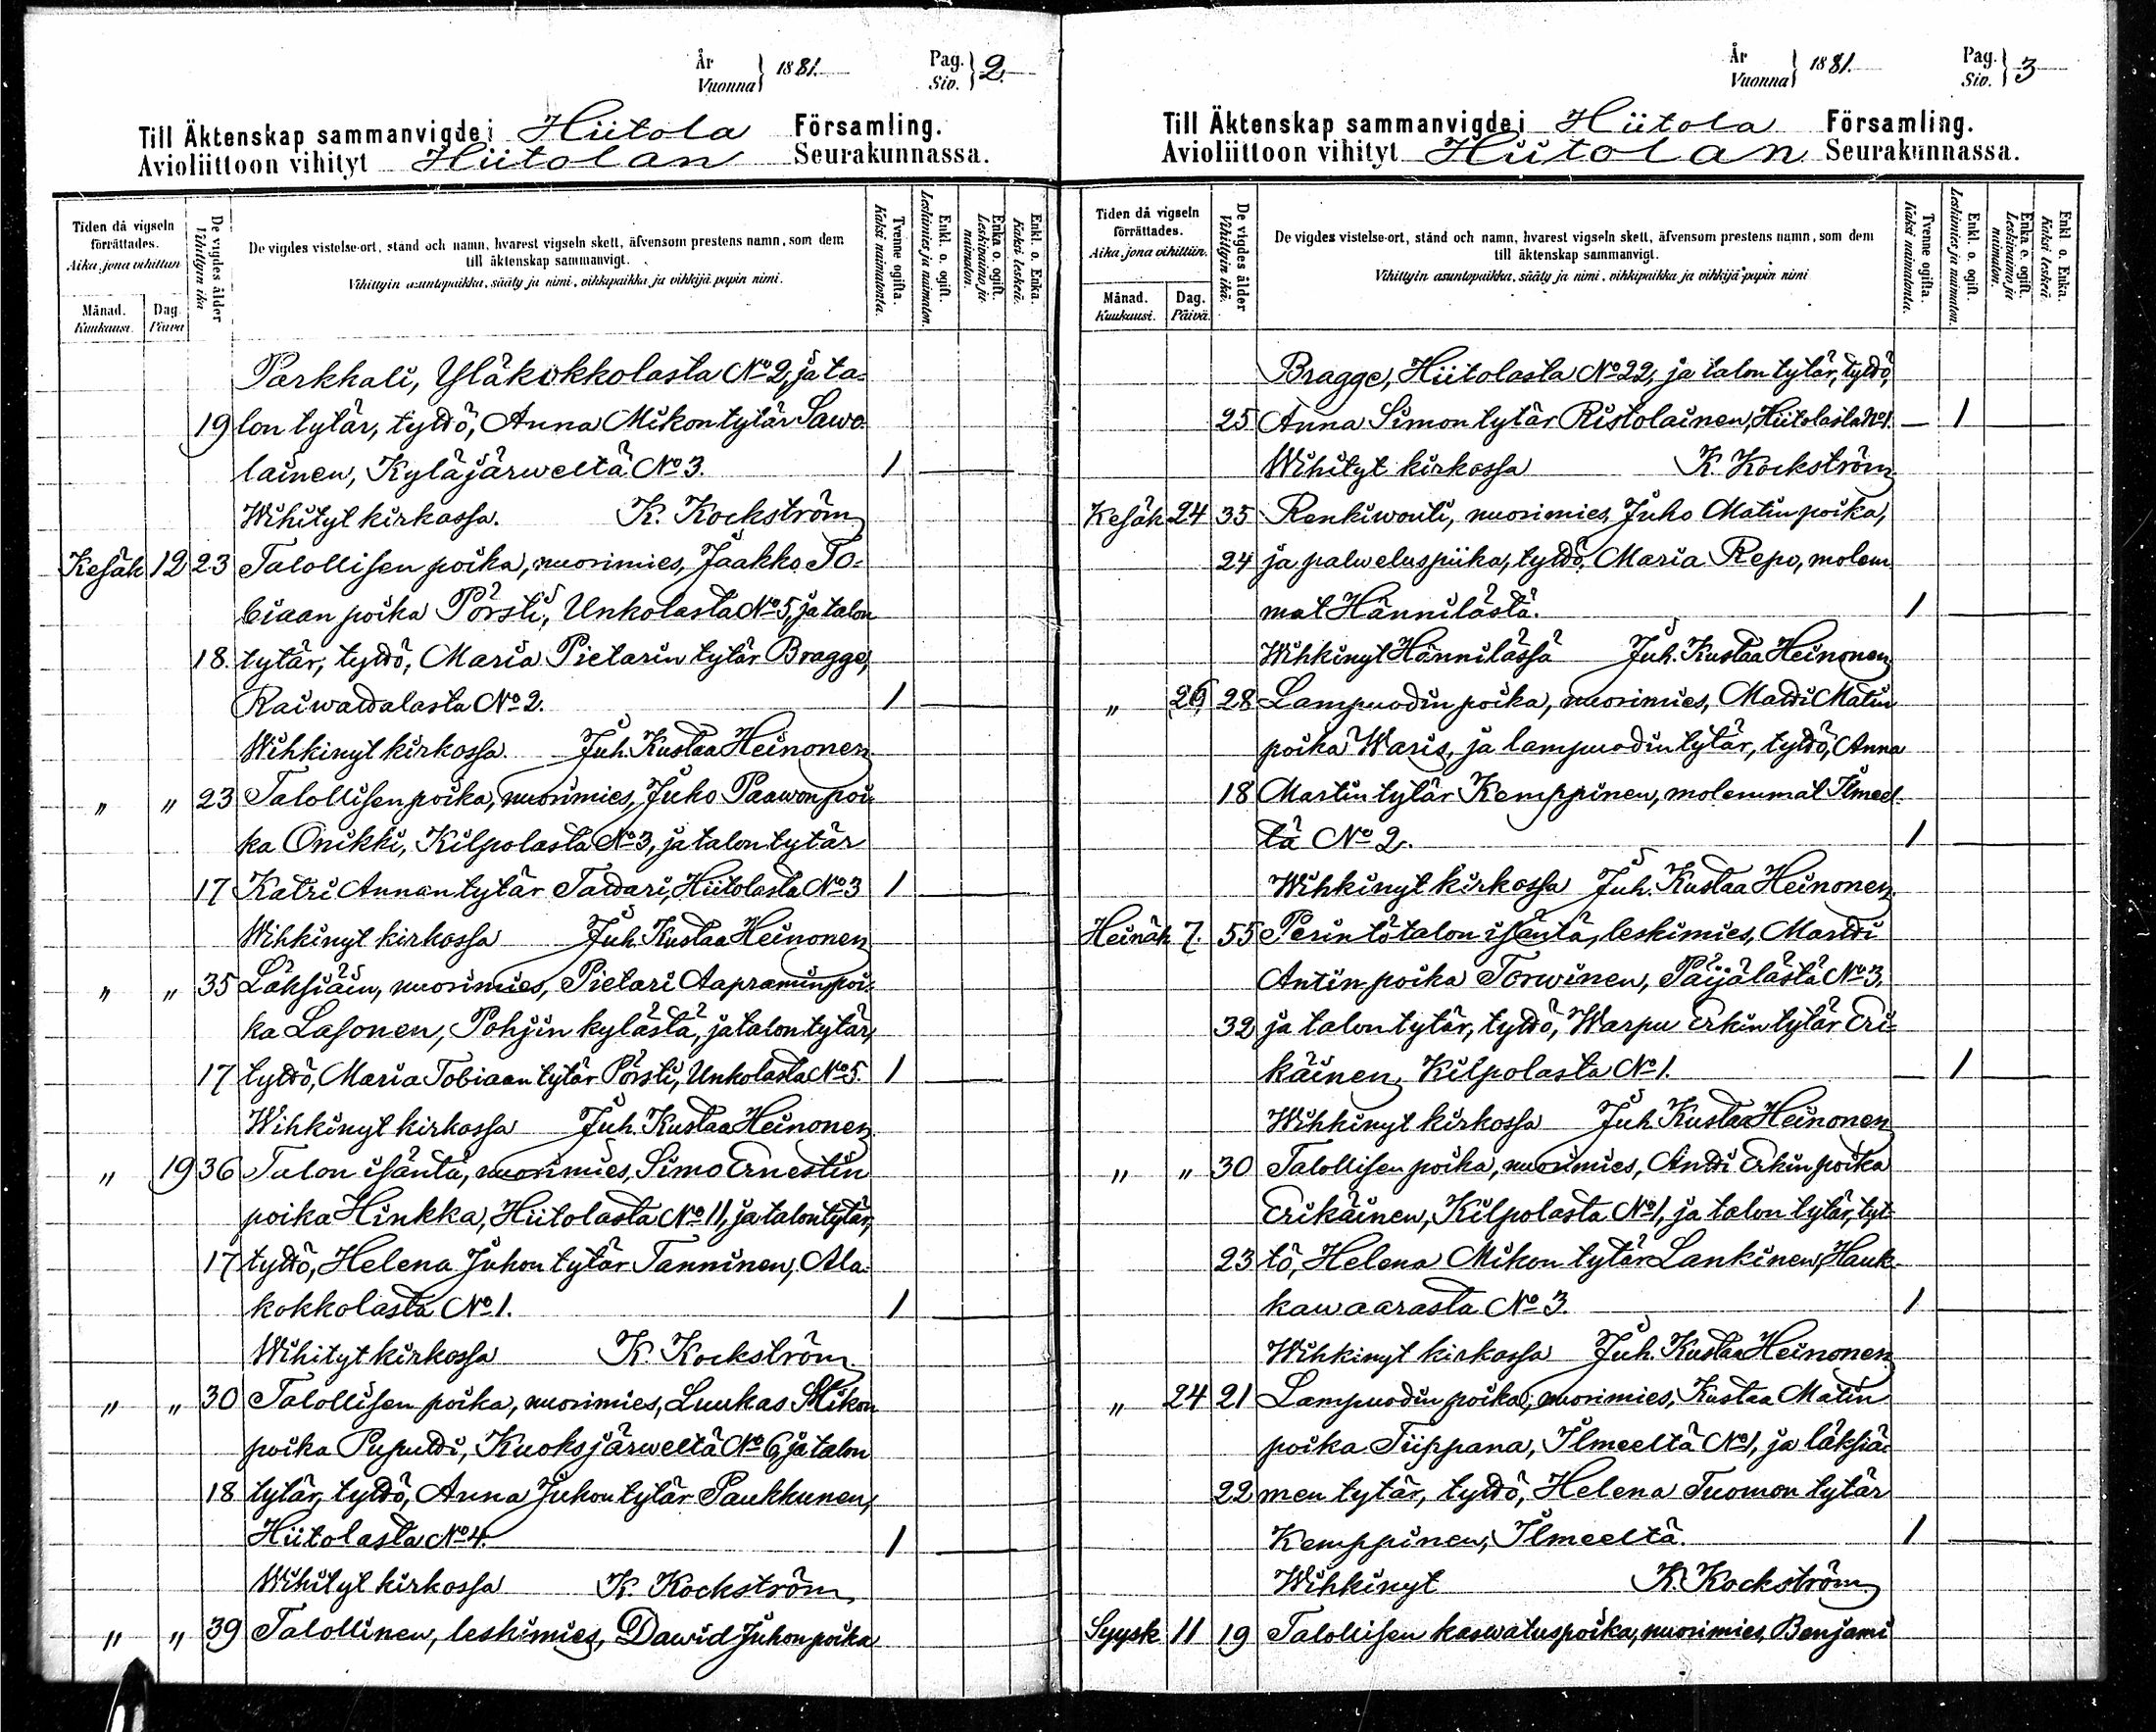 År
Vuonna } 1881.
Pag.
Siv. } 2.
Till Äktenskap sammanvigde i Hiitola Församling.
Avioliittoon vihityt Hiitolan Seurakunnassa.
Tiden då vigseln förrättades.
Aika, jona vihittiin
Månad.
Kuukausi.
Dag.
Päivä
De vigdes ålder
Vihittyin ikä
De vigdes vistelse-ort, stånd och namn, hvarest vigseln skett, äfvensom prestens namn, som dem
till äktenskap sammanvigt.
Vihittyin asuntopaikka, sääty ja nimi, vihkipaikka ja vihkijä papin nimi.
Tvenne ogifta.
Kaksi naimatonta.
Enkl. o. ogift.
Leskimies ja naimaton.
Enka o. ogift.
Leskivaimo ja naimaton.
Enkl. o. Enka.
Kaksi leskeä.
Parkhali, Yläkokkolasta No 2, ja ta-
19 lon tytär, tyttö, Anna Mikon tytär Sawo-
lainen, Kyläjärweltä No 3. 1
Wihityt kirkossa. K. Kockström
Kesäk 12 23 Talollisen poika, nuorimies, Jaakko To-
biaan poika Pörsti, Unkolasta No 5, ja talon
18. tytär, tyttö, Maria Pietarin tytär Bragge,
Raiwattalasta No 2. 1
Wihkinyt kirkossa. Juh. Kustaa Heinonen
" " 23 Talollisen poika, nuorimies, Juho Paawon poi-
ka Onikki, Kilpolasta No 3, ja talon tytär
17 Katri Annan tytär Tattari, Hiitolasta No 3 1
Wihkinyt kirkossa Juh. Kustaa Heinonen
" " 35 Läksiäin, nuorimies, Pietari Aapramin poi-
ka Lasonen, Pohjin kylästä, ja talon tytär,
17 tyttö, Maria Tobiaan tytär Pörsti, Unkolasta No 5. 1
Wihkinyt kirkossa Juh. Kustaa Heinonen
" 19 36 Talon isäntä, nuorimies, Simo Ernestin
poika Hinkka, Hiitolasta No 11, ja talon tytär,
17 tyttö, Helena Juhon tytär Tanninen, Ala-
kokkolasta No 1. 1
Wihityt kirkossa K. Kockström
" " 30 Talollisen poika, nuorimies, Luukas Mikon
poika Puputti, Kuoksjärweltä No 6, ja talon
18 tytär, tyttö, Anna Juhon tytär Paukkunen,
Hiitolasta No 4. 1
Wihityt kirkossa K. Kockström
" " 39 Talollinen, leskimies, Dawid Juhon poika
År
Vuonna } 1881.
Pag.
Siv. } 3
Till Äktenskap sammanvigde i Hiitola Församling.
Avioliittoon vihityt Hiitolan Seurakunnassa.
Tiden då vigseln förrättades.
Aika, jona vihittiin.
Månad.
Kuukausi.
Dag.
Päivä.
De vigdes ålder
Vihittyin ikä.
De vigdes vistelse-ort, stånd och namn, hvarest vigseln skett, äfvensom prestens namn, som dem
till äktenskap sammanvigt.
Vihittyin asuntopaikka, sääty ja nimi, vihkipaikka ja vihkijä papin nimi
Tvenne ogifta.
Kaksi naimatonta.
Enkl. o. ogift.
Leskimies ja naimaton.
Enka o. ogift.
Leskivaimo ja naimaton.
Enkl. o. Enka.
Kaksi leskeä.
Bragge, Hiitolasta No 22, ja talon tytär, tyttö,
25 Anna Simon tytär Ristolainen, Hiitolasta No 1. 1
Wihityt kirkossa K. Kockström
Kesäk 24 35 Renkiwouti, nuorimies, Juho Matin poika,
24 ja palweluspiika, tyttö, Maria Repo, molem
mat Hännilästä. 1
Wihkinyt Hännilässä Juh. Kustaa Heinonen
" 26 28 Lampuodin poika, nuorimies, Matti Matin
poika Waris, ja lampuodin tytär, tyttö, Anna
18 Martin tytär Kemppinen, molemmat Ilmeel-
tä No 2. 1
Wihkinyt kirkossa Juh. Kustaa Heinonen
Heinäk 7. 55 Perintötalon isäntä, leskimies, Martti
Antin poika Torwinen, Päijälästä No 3,
32 ja talon tytär, tyttö, Warpu Erkin tytär Eri-
käinen, Kilpolasta No 1. 1
Wihkinyt kirkossa Juh. Kustaa Heinonen
" " 30 Talollisen poika, nuorimies, Antti Erkin poika
Erikäinen, Kilpolasta No 1, ja talon tytär, tyt-
23 tö, Helena Mikon tytär Lankinen, Hauk-
kawaarasta No 3. 1
Wihkinyt kirkossa Juh. Kustaa Heinonen
" 24 21 Lampuodin poika, nuorimies, Kustaa Matin
poika Tiippana, Ilmeeltä No 1, ja läksiä-
22 men tytär, tyttö, Helena Tuomon tytär
Kemppinen, Ilmeeltä. 1
Wihkinyt K. Kockström
Syysk 11 19 Talollisen kaswatuspoika, nuorimies, Benjami